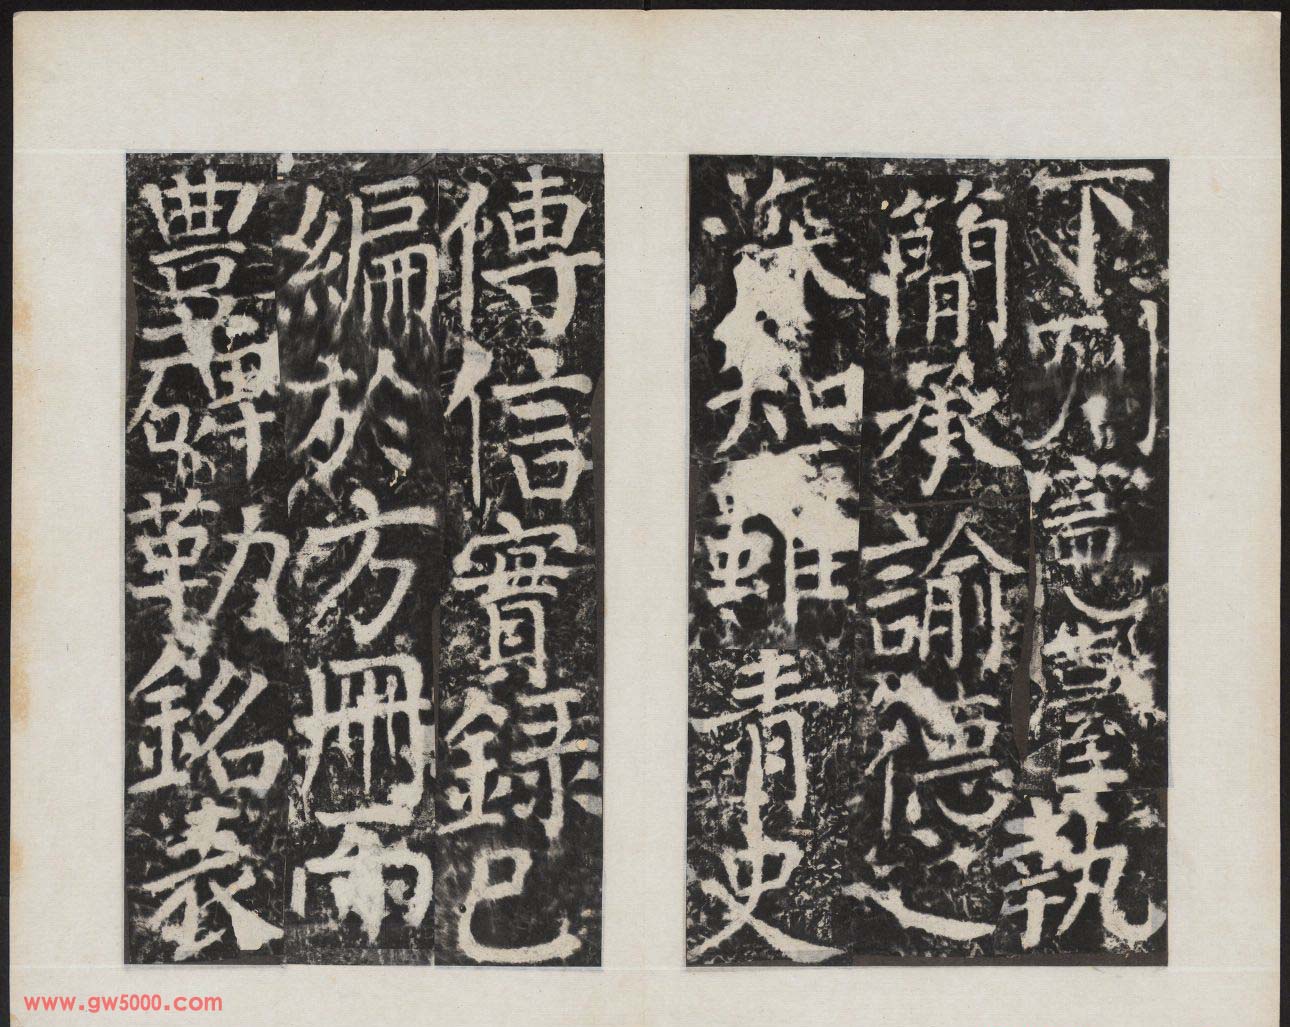 臺執
簡承諭德之
深知雖青史
傳信實錄已
編於方冊而
豐碑勒銘表
www.gw5000.com